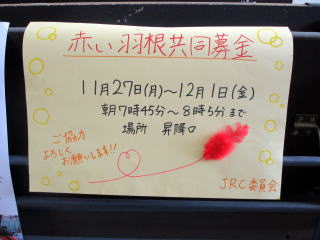 赤い羽根共同募金
11月27日(月)～12月1日(金)
朝7時45分～8時5分まで
場所 昇降口
ご協力
よろしく
お願いします!!
JRC委員会